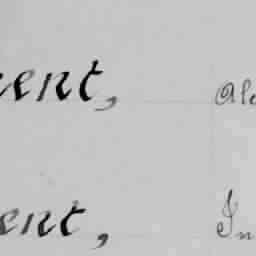 ent, Ala
ent, In